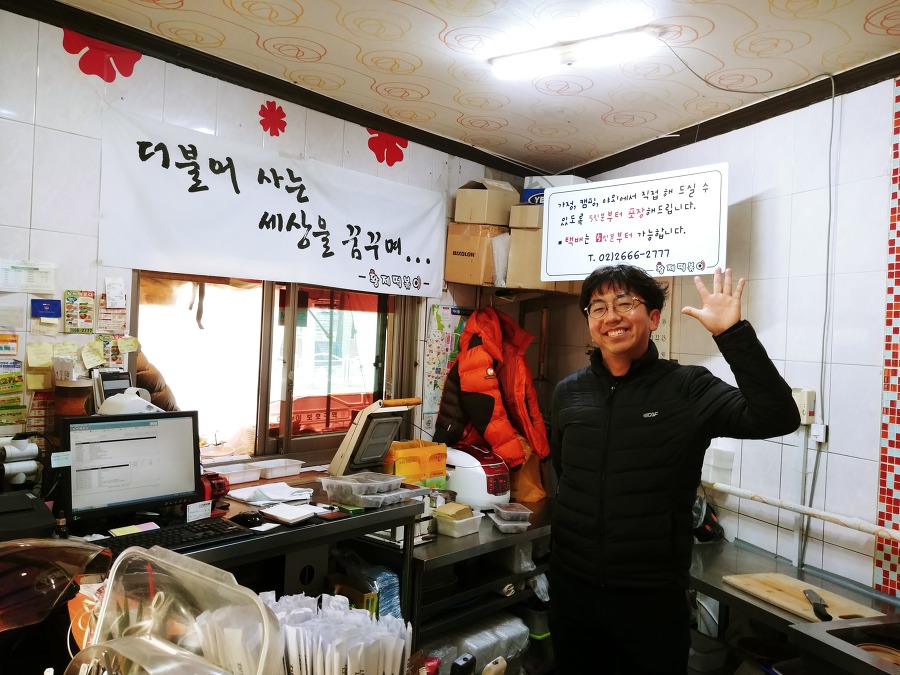 더불어 사는
세상을 꿈꾸며...
- 황제떡볶이 -
가정, 캠핑, 야외에서 직접 해 드실 수
있도록 5인분부터 포장해드립니다.
택배는 6인분부터 가능합니다.
T. 02)2666-2777
황제떡볶이
BIXOLON